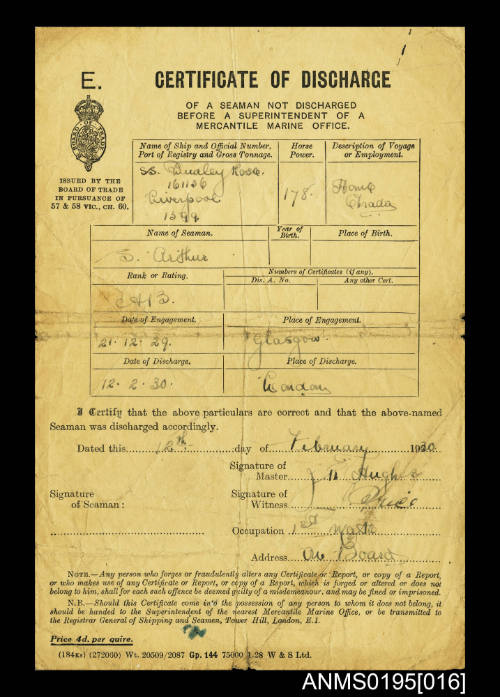 E. CERTIFICATE OF DISCHARGE
OF A SEAMAN NOT DISCHARGED
BEFORE A SUPERINTENDENT OF A
MERCANTILE MARINE OFFICE.
ISSUED BY THE
BOARD OF TRADE
IN PURSUANCE OF
57 & 58 VIC., CH. 60.
Name of Ship and Official Number, Port of Registry and Gross Tonnage.
Horse Power.
Description of Voyage or Employment.
SS. Dudley Rose.
161136
Liverpool
1599
178.
Home Trade
Name of Seaman.
Year of Birth.
Place of Birth.
S. Arthur
Rank or Rating.
Numbers of Certificates (if any).
Dis. A. No.
Any other Cert.
A.B.
Date of Engagement.
Place of Engagement.
21.12.29.
Glasgow.
Date of Discharge.
Place of Discharge.
12.2.30.
London
I Certify that the above particulars are correct and that the above-named
Seaman was discharged accordingly.
Dated this 12th day of February 1930
Signature of Master J. Hughes
Signature of Seaman:
Signature of Witness Price
Occupation 1st Mate
Address On Board
NOTE.—Any person who forges or fraudulently alters any Certificate or Report, or copy of a Report,
or who makes use of any Certificate or Report, or copy of a Report, which is forged or altered or does not
belong to him, shall for each such offence be deemed guilty of a misdemeanour, and may be fined or imprisoned.
N.B.—Should this Certificate come into the possession of any person to whom it does not belong, it
should be handed to the Superintendent of the nearest Mercantile Marine Office, or be transmitted to
the Registrar General of Shipping and Seamen, Tower Hill, London, E.1.
Price 4d. per quire.
(184KS) (272060) Wt. 20509/2087 Gp. 144 75000 1-28 W & S Ltd.
ANMS0195[016]